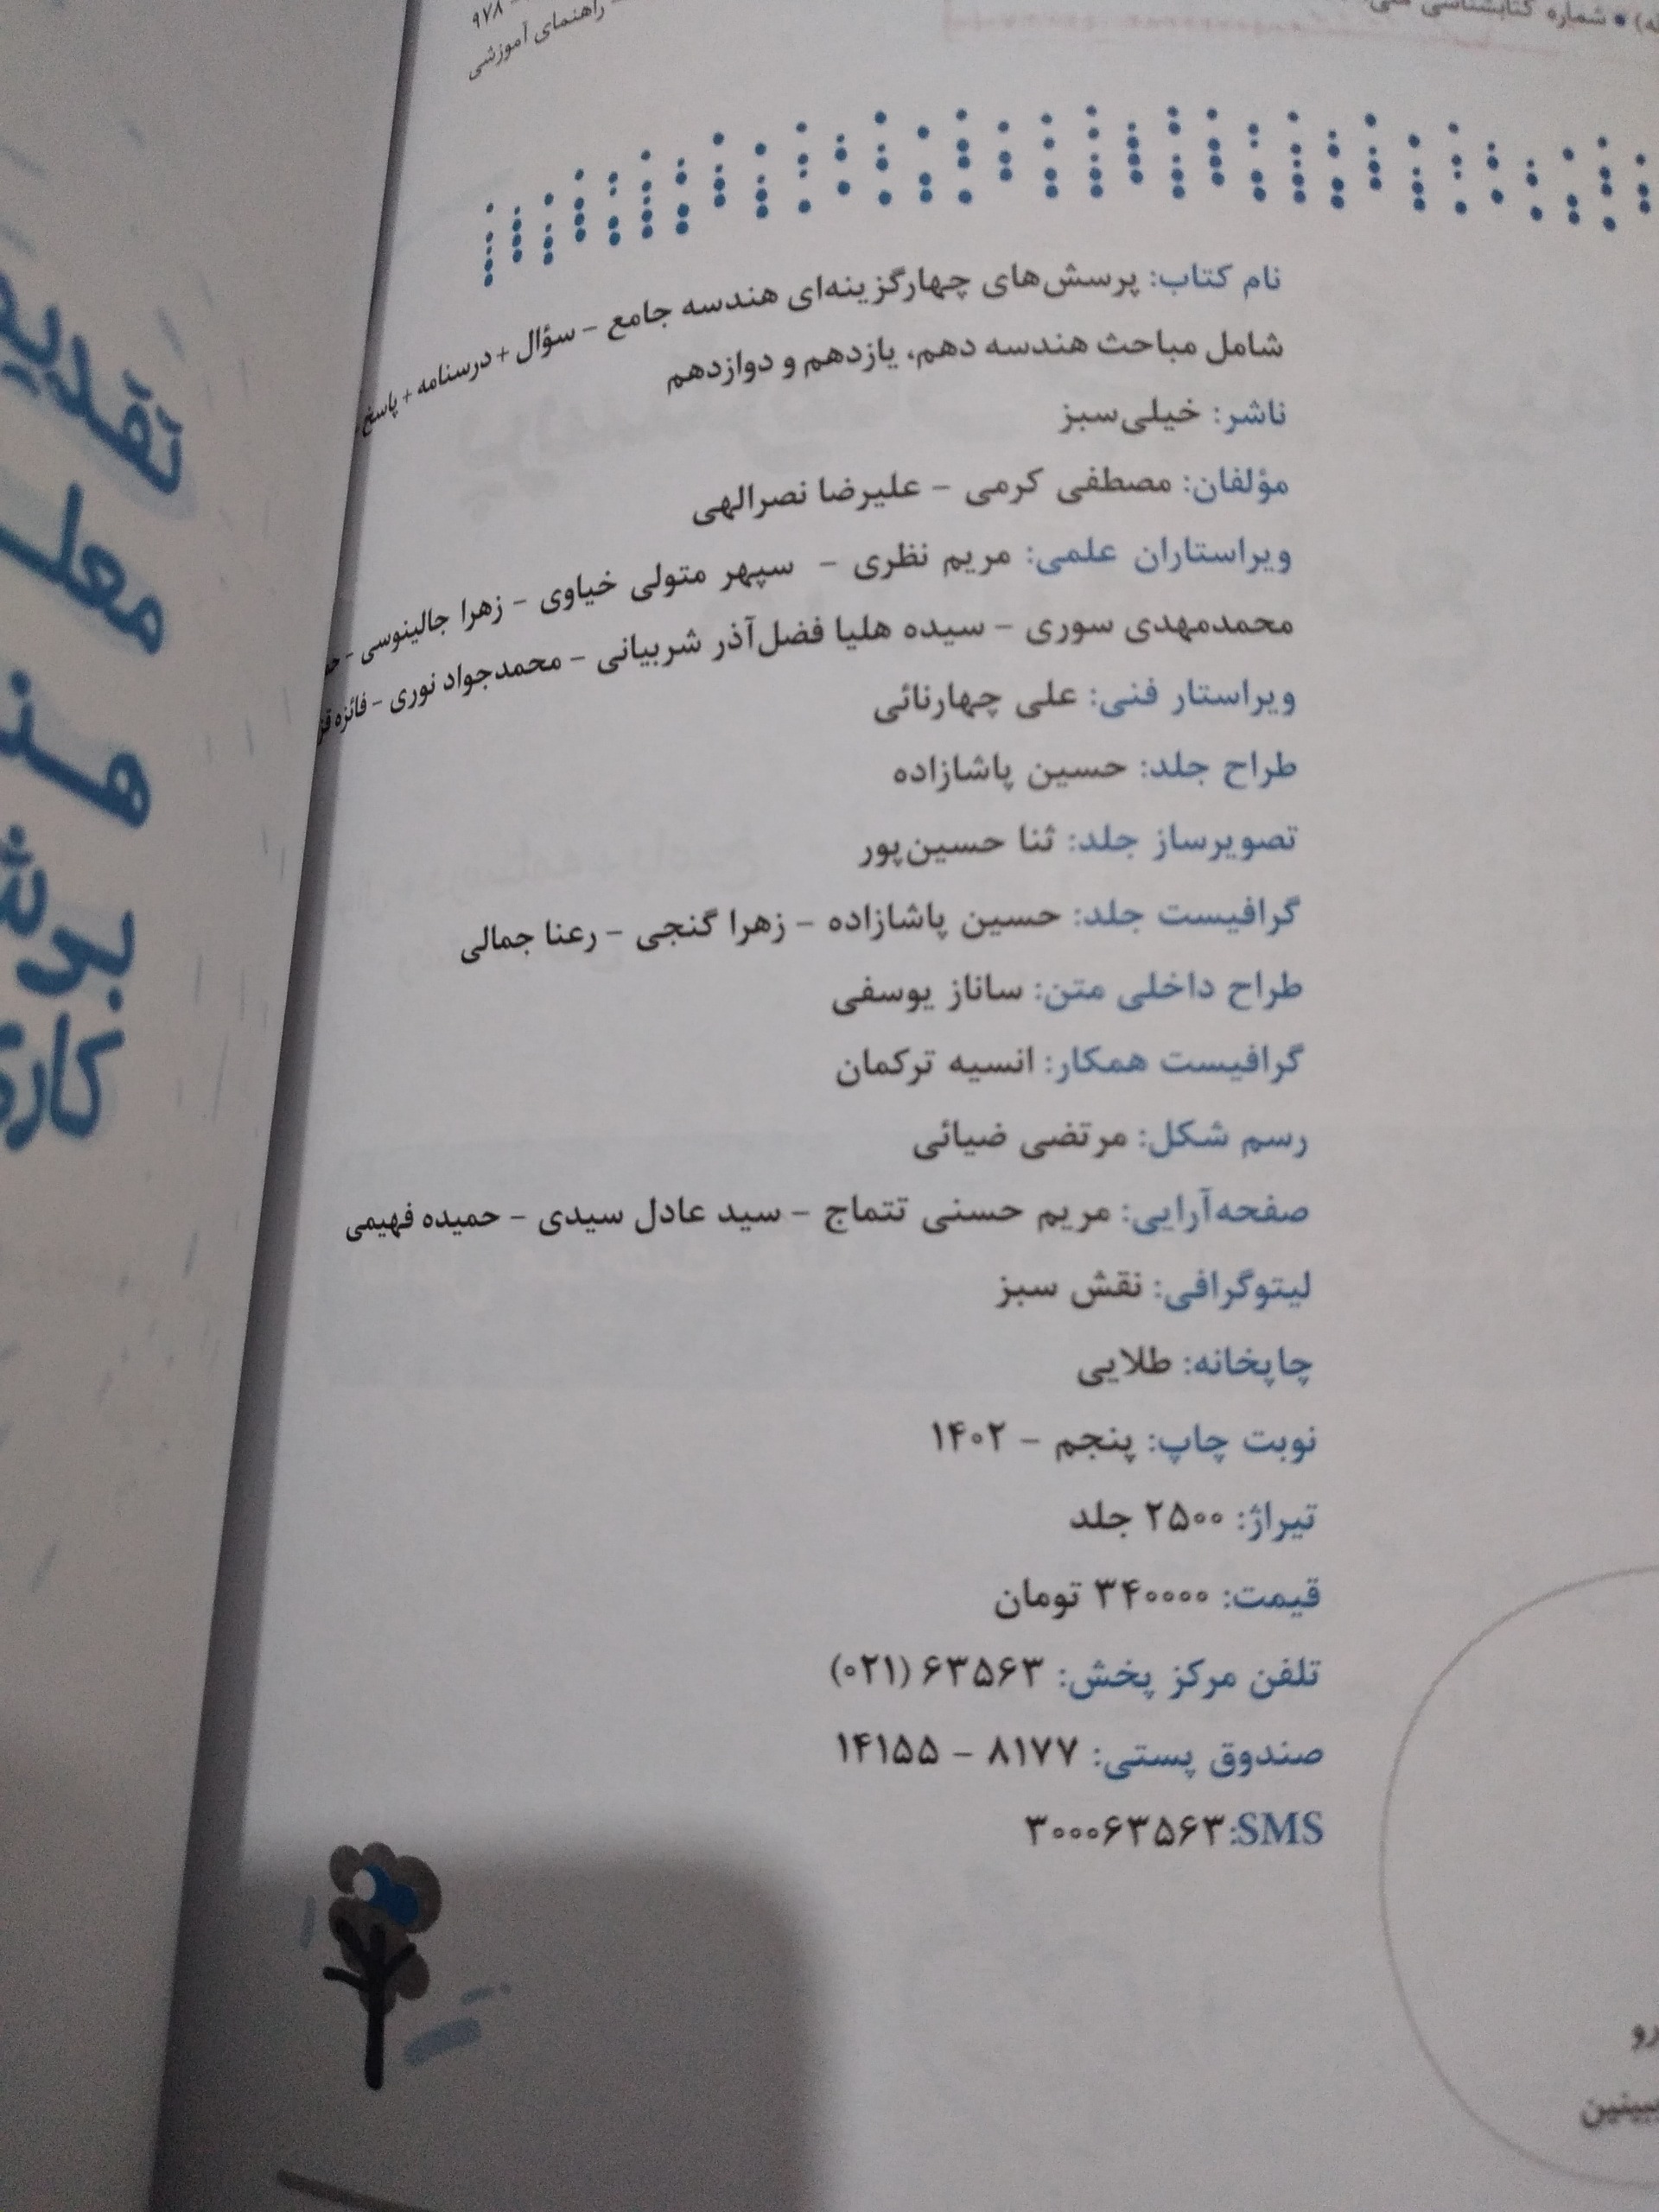 راهنمای آموزشی
• شماره کتابشناسی
نام کتاب: پرسش‌های چهارگزینه‌ای هندسه جامع – سؤال + درسنامه + پاسخ
شامل مباحث هندسه دهم، یازدهم و دوازدهم
ناشر: خیلی‌سبز
مؤلفان: مصطفی کرمی – علیرضا نصرالهی
ویراستاران علمی: مریم نظری – سپهر متولی خیاوی – زهرا جالینوسی –
محمدمهدی سوری – سیده هلیا فضل‌آذر شربیانی – محمدجواد نوری – فائزه
ویراستار فنی: علی چهارنائی
طراح جلد: حسین پاشازاده
تصویرساز جلد: ثنا حسین‌پور
گرافیست جلد: حسین پاشازاده – زهرا گنجی – رعنا جمالی
طراح داخلی متن: ساناز یوسفی
گرافیست همکار: انسیه ترکمان
رسم شکل: مرتضی ضیائی
صفحه‌آرایی: مریم حسنی تتماج – سید عادل سیدی – حمیده فهیمی
لیتوگرافی: نقش سبز
چاپخانه: طلایی
نوبت چاپ: پنجم – ۱۴۰۲
تیراژ: ۲۵۰۰ جلد
قیمت: ۳۴۰۰۰۰ تومان
تلفن مرکز پخش: ۶۳۵۶۳ (۰۲۱)
صندوق پستی: ۸۱۷۷ – ۱۴۱۵۵
SMS:۳۰۰۰۶۳۵۶۳